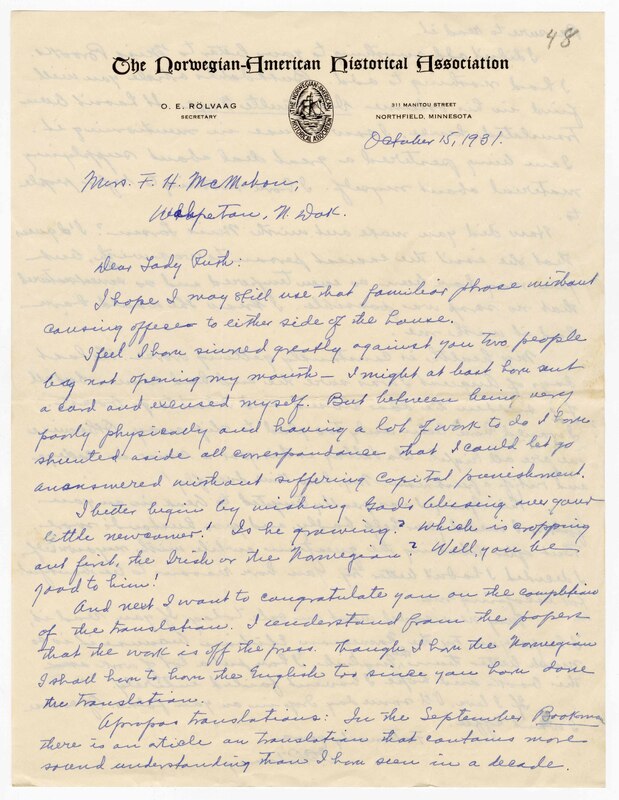 48
The Norwegian-American Historical Association
O. E. RÖLVAAG
SECRETARY
THE NORWEGIAN AMERICAN HISTORICAL ASSOCIATION
311 MANITOU STREET
NORTHFIELD, MINNESOTA
October 15, 1931.
Mrs. F. H. McMahon,
Wahpeton, N. Dak.
Dear Lady Ruth:
I hope I may still use that familiar phrase without
causing offense to either side of the house.
I feel I have sinned greatly against you two people
by not opening my mouth — I might at least have sent
a card and excused myself. But between being very
poorly physically and having a lot of work to do I have
shunted aside all correspondance that I could let go
unanswered without suffering capital punishment.
I better begin by wishing God's blessing over your
little newcomer! Is he growing? Which is cropping
out first, the Irish or the Norwegian? Well, you be
good to him!
And next I want to congratulate you on the completion
of the translation. I understand from the papers
that the work is off the press. Though I have the Norwegian
I shall have to have the English too since you have done
the translation.
Apropos translations: In the September Bookman
there is an article on translation that contains more
sound understanding than I have seen in a decade.